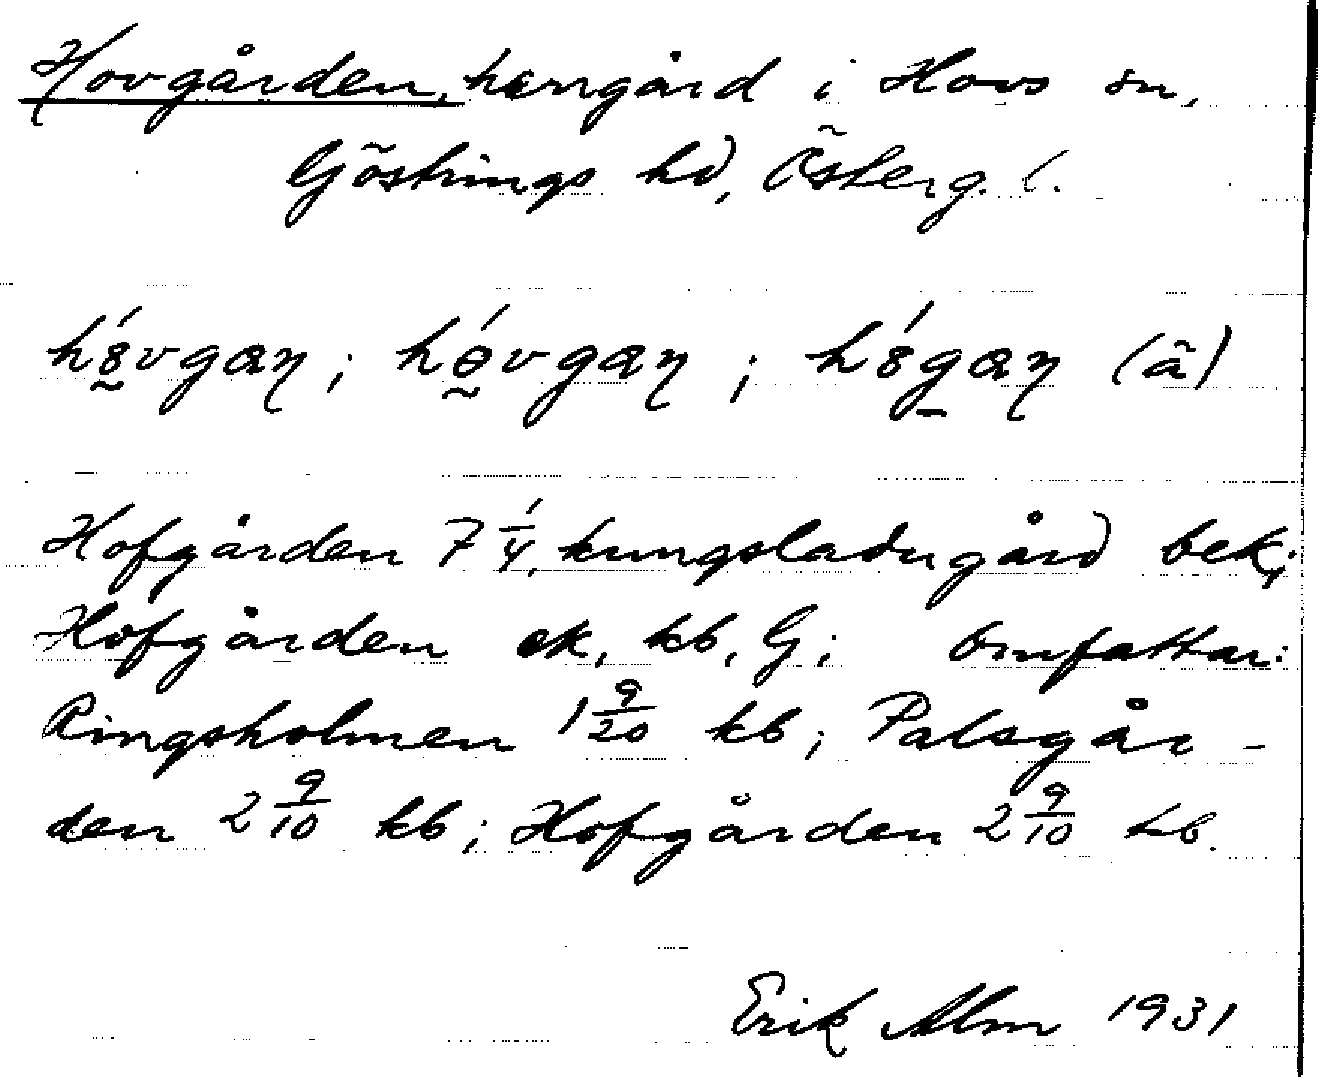 Hovgården, herrgård i Hovs sn,
Göstrings hd, Österg. l.
hȣ́vgæɳ ; hɵ́vgæɳ ; hȣ́gæɳ (ã)
Hofgården 7 1/4, kungsladugård bek;
Hofgården ek, kb, G; Omfattar:
Ringsholmen 1 9/20 kb; Palsgår-
den 2 9/10 kb; Hofgården 2 9/10 kb.
Erik Alm 1931